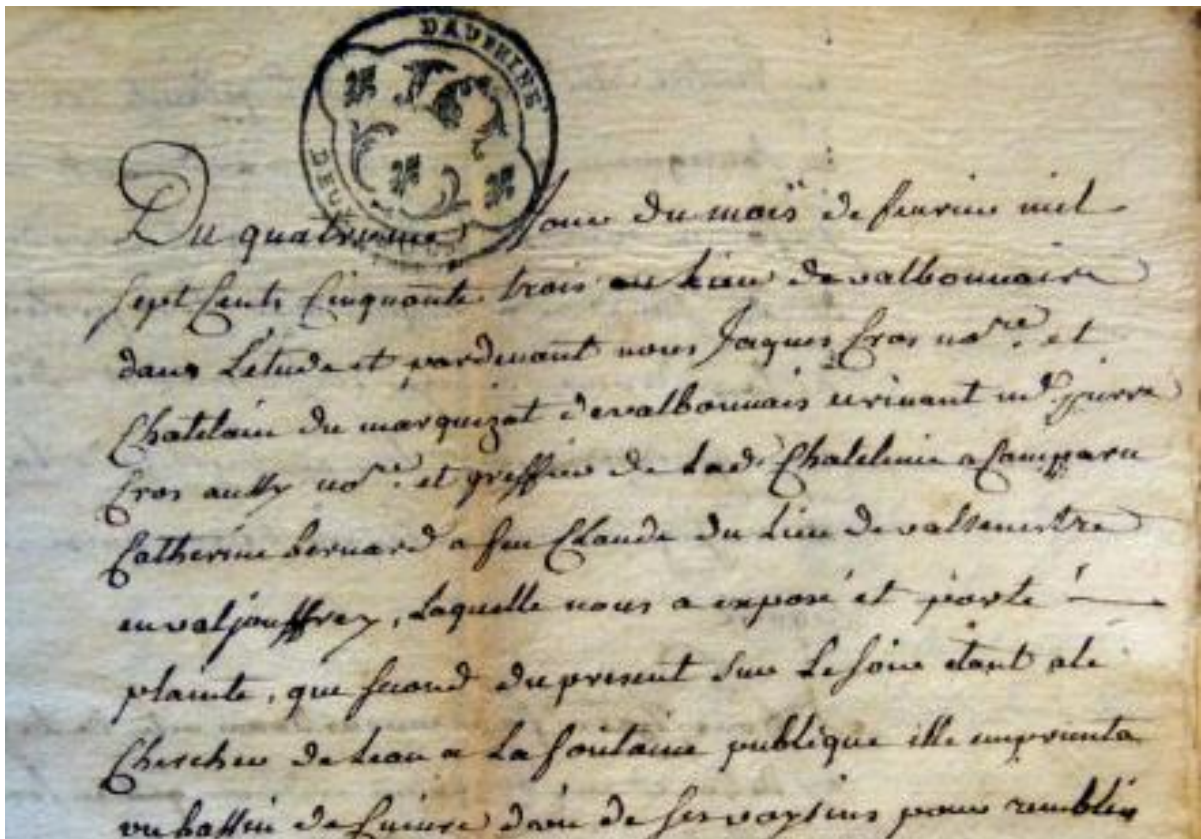 DAUPHINÉ
DEUX
Du quatrieme Jour du moïs de feuvrier mil
sept Cents Cinquante trois au Lieu de valbonnais
dans L'etude et pardevant nous Jaques Cros no.re et
Chatelain du marquizat de valbonnais ecrivant m.e pierre
Cros aussy no.re et greffier de Lad. Chatelenie a Comparu
Catherine bernard a feu Claude du Lieu de valsenestre
en valjouffrey, Laquelle nous a exposé et porté
plainte, que second du present sur Le soir etant alé
Chercher de Leau a La fontaine publique elle emprunta
un bassin de Cuivre d'un de ses voysins pour remblir